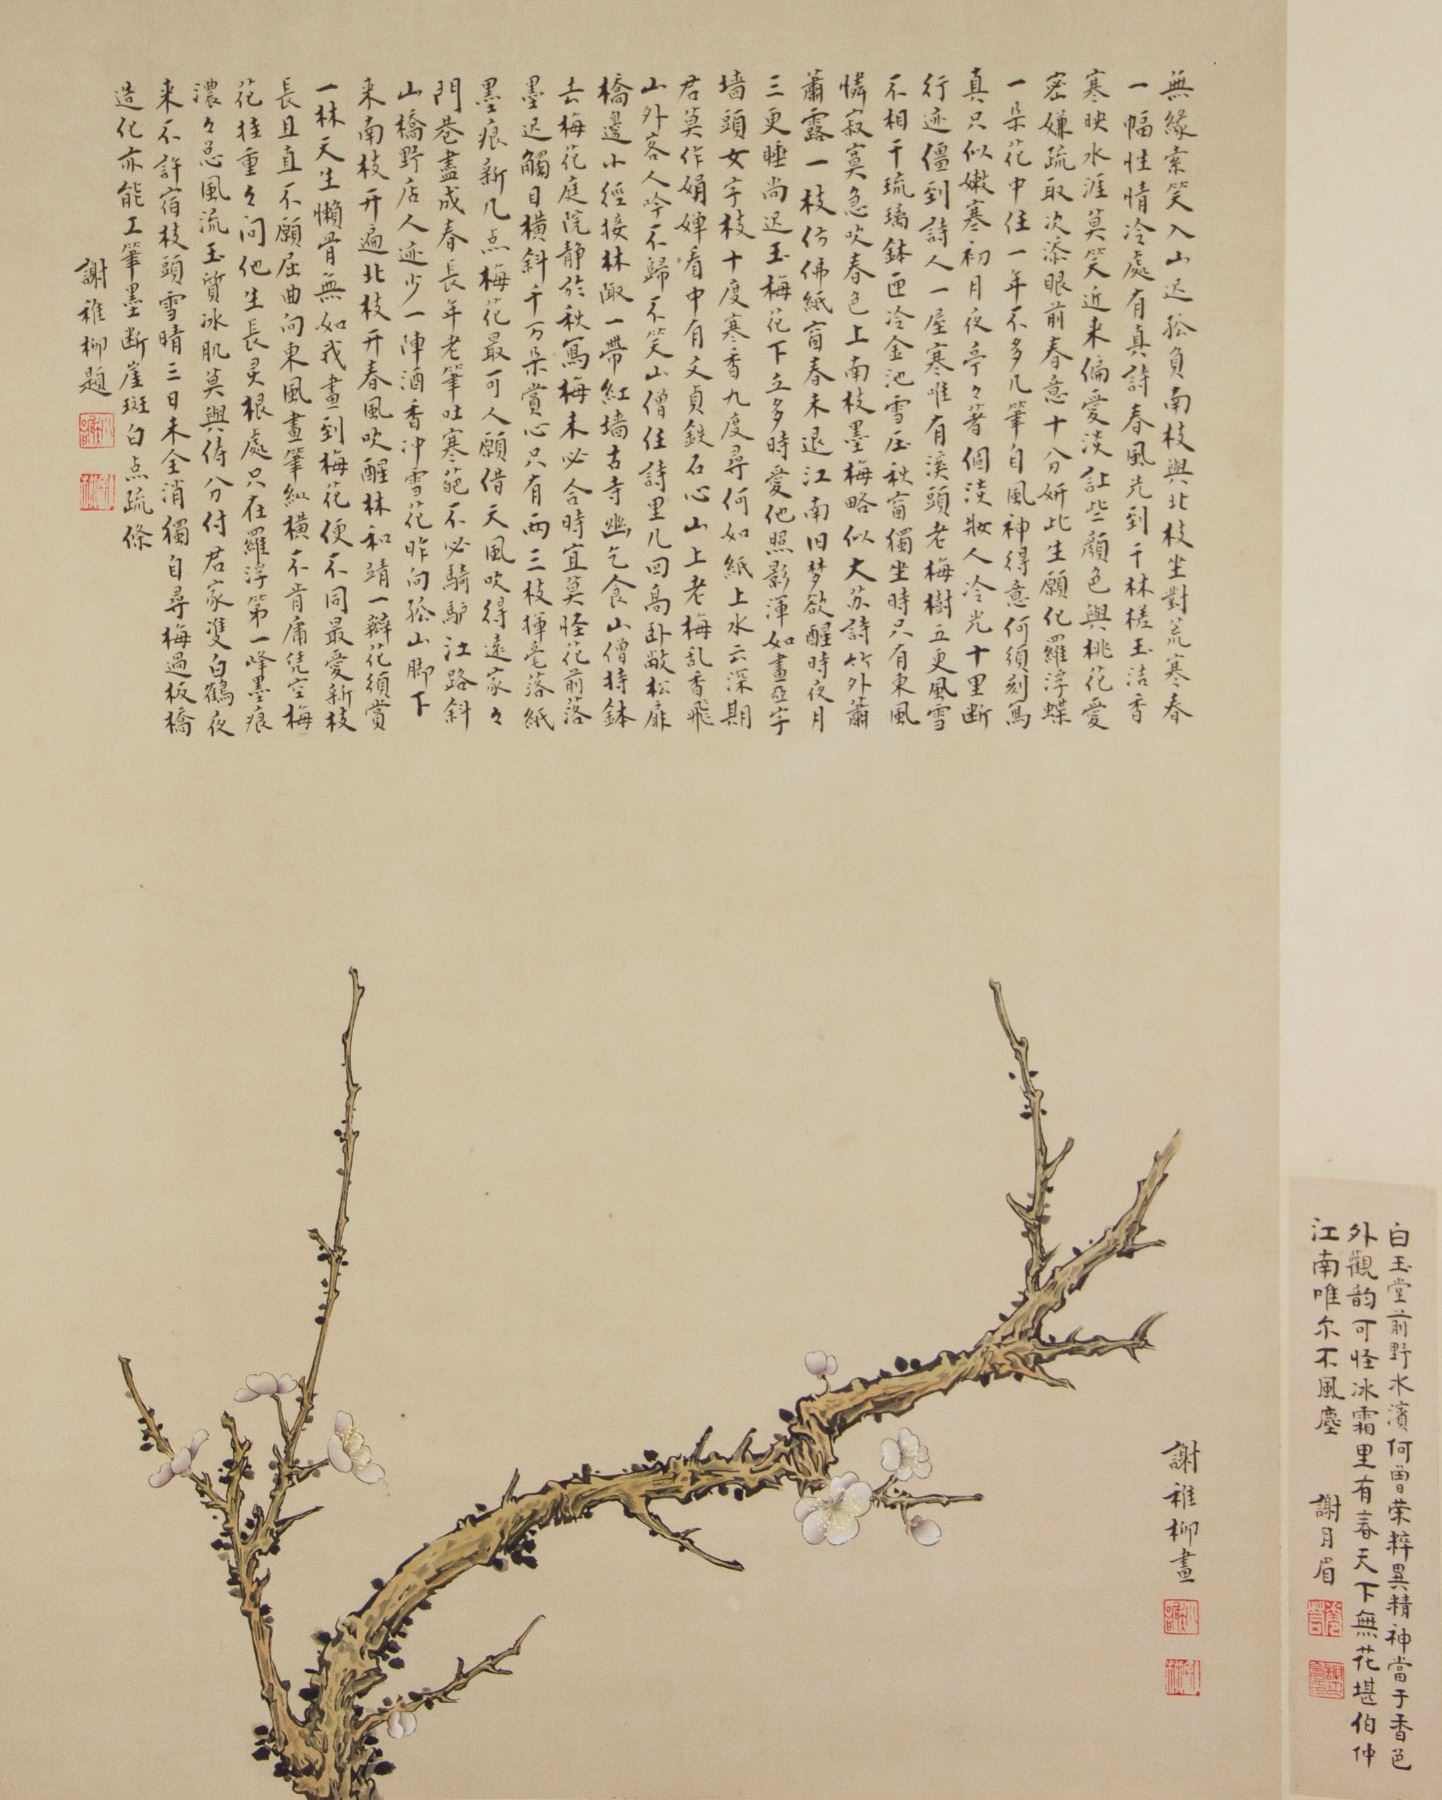 無緣索笑入山迟孤負南枝與北枝坐對荒寒春
一幅性情冷處有真詩春風先到千林槎玉洁香
寒映水涯莫笑近来偏爱淡訨些顏色與桃花爱
密嫌疏取次添眼前春意十分妍此生願化羅浮蝶
一朵花中住一年不多几筆自風神得意何須刻寫
真只似嫩寒初月夜亭々著個淡妝人冷光十里断
行迹僵到詩人一屋寒唯有溪頭老梅樹五更風雪
不相干琉璃鉢匝冷金池雪压秋窗獨坐時只有東風
憐寂寞急吹春色上南枝墨梅略似大苏詩竹外蕭
蕭露一枝仿佛紙窗春未退江南旧梦欲醒時夜月
三更睡尚迟玉梅花下立多時爱他照影渾如畫亞字
墙頭女字枝十度寒香九度尋何如紙上水云深期
君莫作娟婵看中有文貞鉄石心山上老梅乱香飛
山外客人吟不歸不笑山僧住詩里几回高卧敞松扉
橋邊小徑接林陬一帶紅墙古寺幽乞食山僧持鉢
去梅花庭院静於秋寫梅未必合時宜莫怪花前落
墨迟觸目横斜千万朵赏心只有两三枝揮毫落紙
墨痕新几点梅花最可人願借天風吹得遠家々
門巷盡成春長年老筆吐寒葩不必騎驴江路斜
山橋野店人迹少一陣酒香冲雪花昨向孤山脚下
来南枝开遍北枝开春風吹醒林和靖一瓣花須赏
一林天生懒骨無如我畫到梅花便不同最爱新枝
長且直不願屈曲向東風畫筆纵横不肯庸凭空梅
花挂重々问他生長灵根處只在羅浮第一峰墨痕
濃々忌風流玉質冰肌莫與俦分付君家雙白鶴夜
来不許宿枝頭雪晴三日未全消獨自尋梅過板橋
造化亦能工筆墨断崖斑白点疏條
謝稚柳題
謝稚柳畫
白玉堂前野水濱何曾荣粹異精神當于香色
外觀韵可怪冰霜里有春天下無花堪伯仲
江南唯尔不風塵 謝月眉